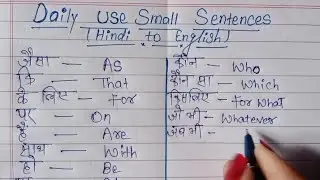 Daily Use Small Sentences
(Hindi to English)
जैसा — As
कि — That
के लिए — For
पर — On
हैं — Are
साथ — With
हो — Be
कौन — Who
कौन सा — Which
किसलिए — For What
जो भी — Whatever
जब भी —